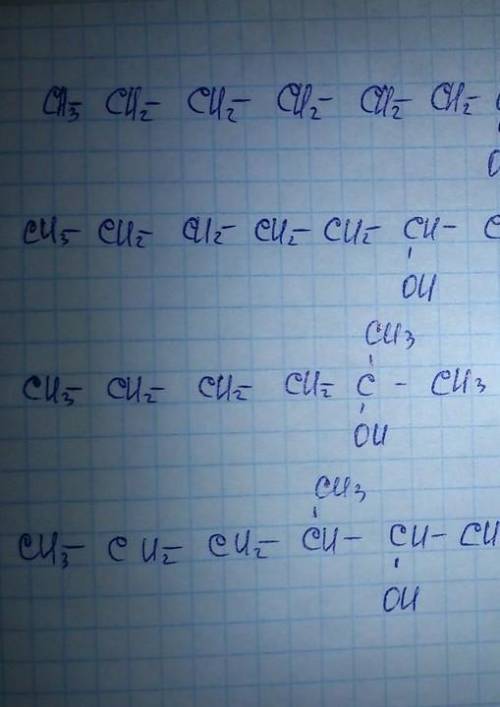 CH3- CH2- CH2- CH2- CH2- CH2- C
O
CH3- CH2- CH2- CH2- CH2- CH- C
OH
CH3
CH3- CH2- CH2- CH2 C - CH3
OH
CH3
CH3- CH2- CH2- CH- CH- CH
OH